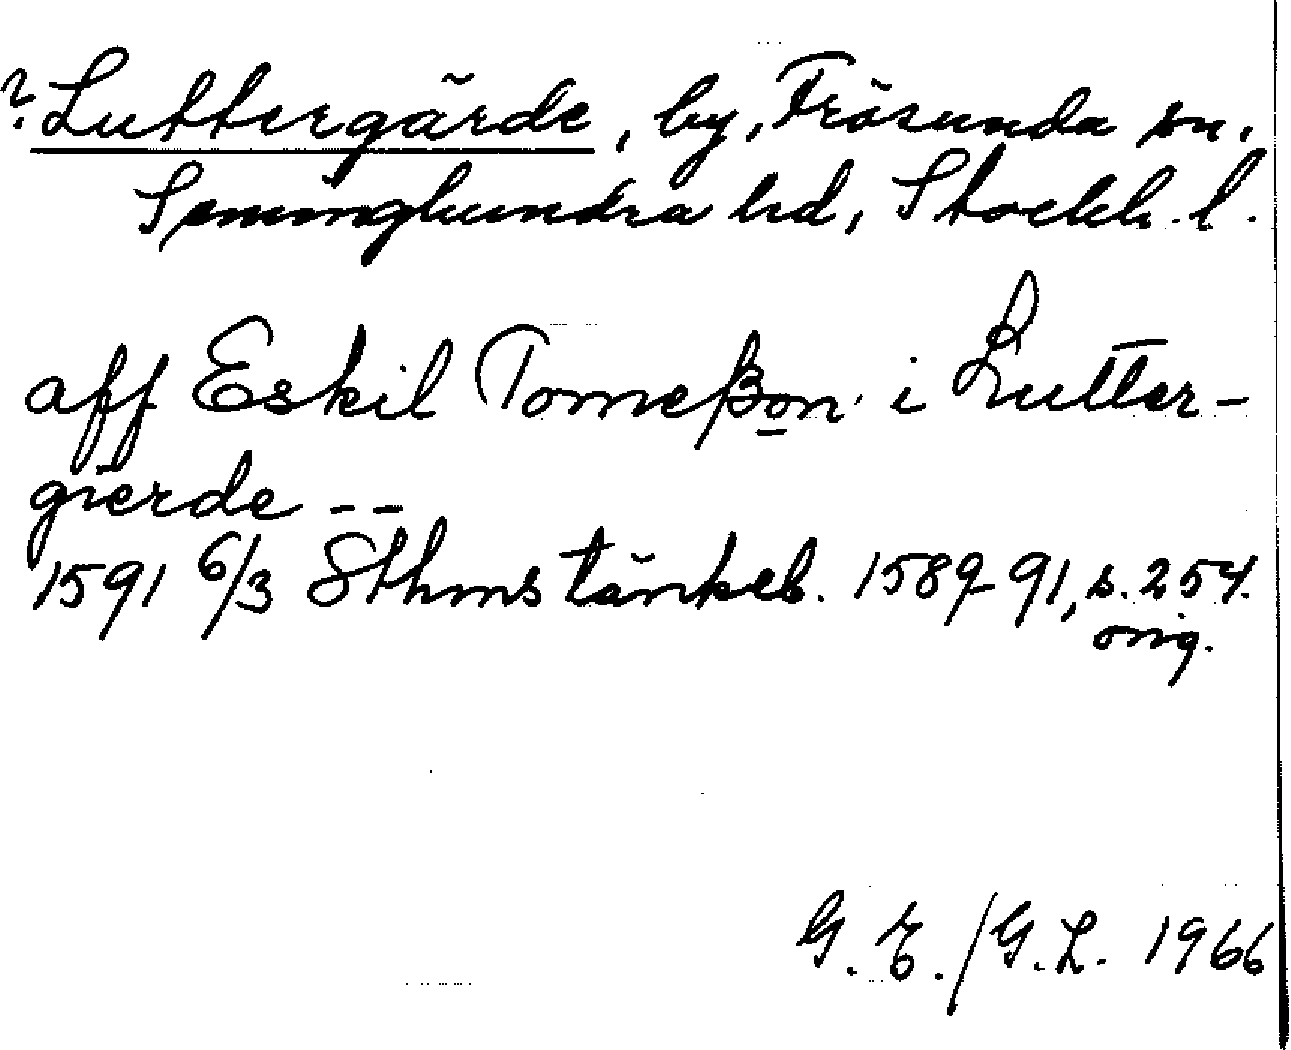 ? Luttergärde, by, Frösunda sn.
Seminghundra hd, Stockh. l.
aff Eskil Tomeßon i Lutter-
gierde --
1591 6/3 Sthms tänkeb. 1589-91, s. 254.
orig.
G. E./G. L. 1966